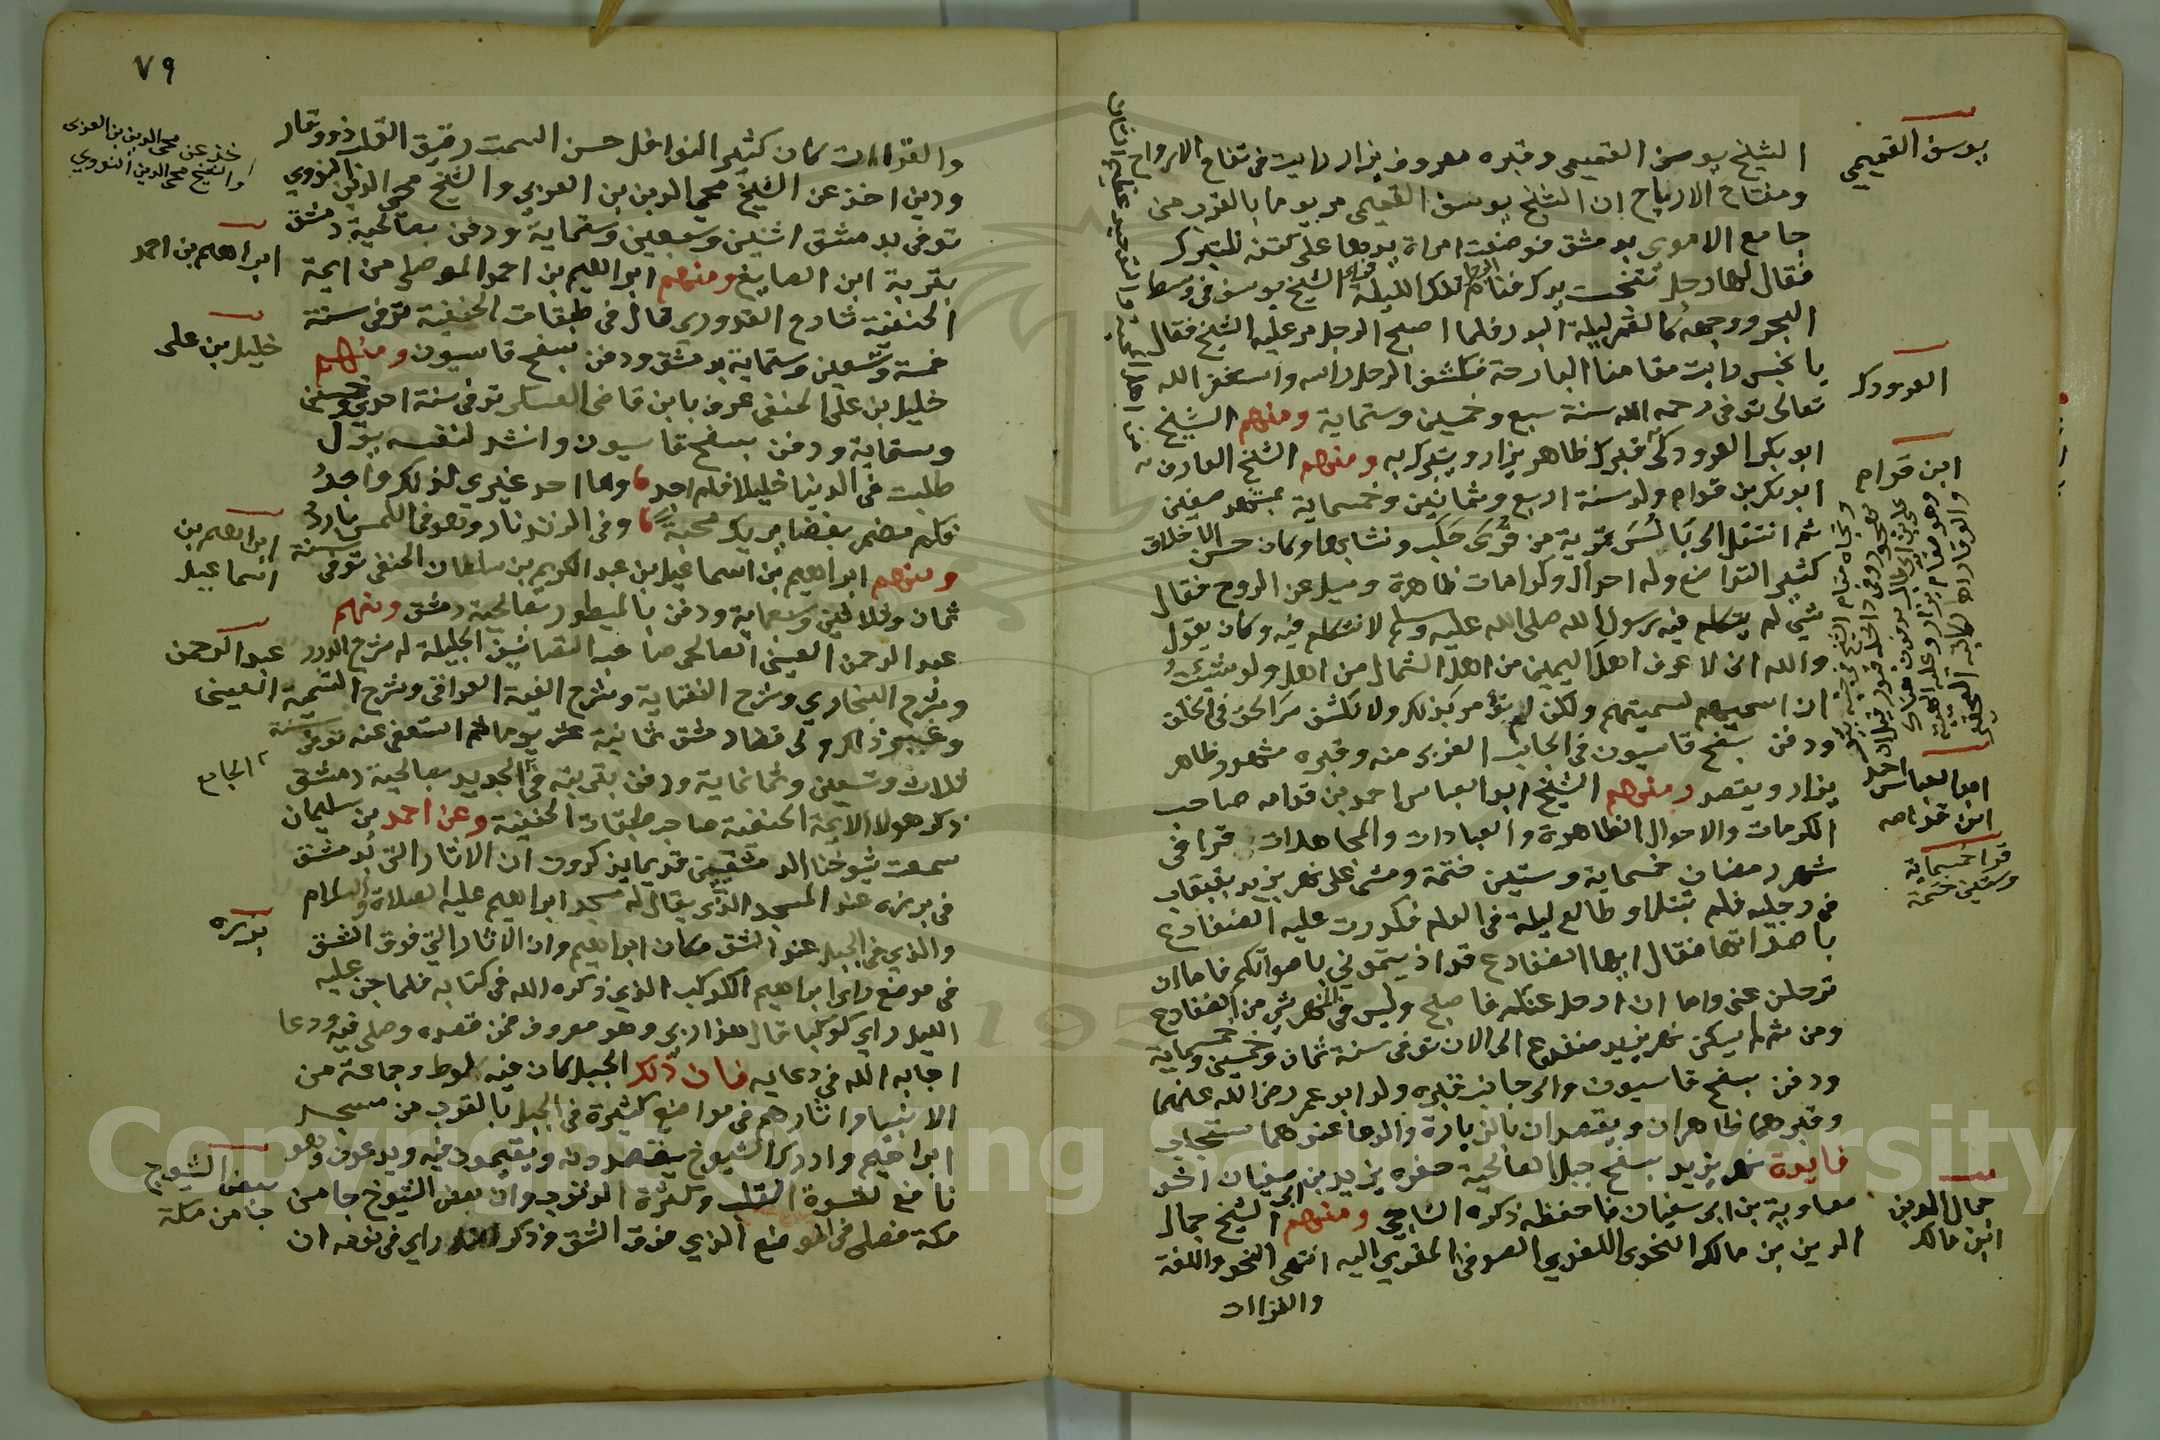 يوسف القميمي
الشيخ يوسف القميمي وقبره معروف يزار رايت في تفاح الارواح
ومفتاح الارباح ان الشيخ يوسف القميمي مر يوما بالقرب من
جامع الاموي بدمشق فوضعت امراة يدها على كتفه للتبرك
فقال لها رجل تنجست يدك فنام الرجل تلك الليلة فراى الشيخ يوسف في وسط
البحر ووجهه كالقمر ليلة البدر فلما اصبح الرجل مر عليه الشيخ فقال
يا نجس رايت مقامنا البارحة فكشف الرجل راسه واستغفر الله
تعالى توفي رحمه الله سنة سبع وخمسين وستماية ومنهم الشيخ
العرودك
ابو بكر العرودكي قبره ظاهر يزار ويتبرك به ومنهم الشيخ العارف
ابن قوام
ابو بكر بن قوام ولد سنة اربع وثمانين وخمسماية بمشهد صفين
ثم انتقل الى بالس قرية من قرى حلب ونشا بها وكان حسن الاخلاق
كثير التواضع وله احوال وكرامات ظاهرة وسيل عن الروح فقال
شي لم يتكلم فيه رسول الله صلى الله عليه وسلم لا نتكلم فيه وكان يقول
والله اني لا عرف اهل اليمين من اهل الشمال من اهل ولو شئت
ان اسميهم لسميتهم ولكن لم نؤمر بذلك ولا نكشف سر الحق في الخلق
ودفن بسفح قاسيون في الجانب الغربي منه وقبره مشهور ظاهر
ابو العباس احمد
ابن قدامه
يزار ويقصد ومنهم الشيخ ابو العباس احمد بن قدامه صاحب
الكرمات والاحوال الظاهرة والعبادات والمجاهدات قرا في
قرا خمسماية
وستين ختمة
شهر رمضان خمسماية وستين ختمة ومشى على نهر يزيد بقبقاب
في رجليه فلم تبتلا وطالع ليلة في العلم فكدرت عليه الضفادع
باصواتها فقال ايها الضفادع قد اذيتموني باصواتكم فاما ان
ترحلن عني واما ان ارحل عنكم فاصبح وليس في النهر شي من الضفادع
ومن ثم لم يسكن نهر يزيد ضفدع الى الان توفي سنة ثمان وخمسين وخمسماية
ودفن بسفح قاسيون والى جانب قبره ولد ابو عمر رضي الله عنهما
وقبرهما ظاهران ويقصدان بالزيارة والدعا عندهما مستجاب
فايدة نهر يزيد بسفح جبل الصالحية حفره يزيد بن ابي سفيان اخو
جمال الدين
ابن مالك
معاوية بن ابي سفيان فاحفظه ذكره الشاجي ومنهم الشيخ جمال
الدين بن مالك النحوي اللغوي الصوفي المقري اليه انتهى النحو واللغة
والقراات
٧٩
والقراات كان كثير النوافل حسن السمت رقيق القلب ذو وقار
اخذ عن محي الدين بن العربي
والشيخ محي الدين النووي
ودين اخذ عن الشيخ محي الدين بن العربي والشيخ محي الدين النووي
توفي بدمشق اثنين وسبعين وستماية ودفن بصالحية دمشق
ابراهيم بن احمد
بتربة ابن الصايغ ومنهم ابراهيم بن احمد الموصلي من ايمة
الحنفية شارح القدوري قال في طبقات الحنفية توفي سنة
خليل بن علي
خمسة وتسعين وستماية بدمشق ودفن بسفح قاسيون ومنهم
خليل بن علي الحنفي عرف بابن قاضي العسكر توفي سنة احدى وخمسين
وستماية ودفن بسفح قاسيون وانشد لنفسه يقول
طلبت في الدنيا خليلا فلم اجد وما احد غيري لذلك واجد
فكم مضمر بغضا يريك محبة وفي الزند نار وهو في اللمس بارد
ابراهيم بن
اسماعيل
ومنهم ابراهيم بن اسماعيل بن عبد الكريم بن سلطان الحنفي توفي سنة
ثمان وثلاثين وسبعماية ودفن بالميطور بصالحية دمشق ومنهم
عبد الرحمن
عبد الرحمن العيني الصالحي صاحب التصانيف الجليلة له شرح الدرر
وشرح البخاري وشرح النقاية وشرح الفية العراقي وشرح التسمية ايضا
وغير ذلك ولي قضا دمشق ثمانية عشر يوما ثم استعفي عنه توفي سنة
الجامع
ثلاث وتسعين وثمانماية ودفن بتربته في الجديد بصالحية دمشق
ذكر هولا الايمة الحنفية صاحب طبقات الحنفية وعن احمد بن سليمان
سمعت شيوخنا الدمشقيين قديما يذكرون ان الاثار التي بدمشق
برزه
في برزه عند المسجد الذي يقال له مسجد ابراهيم عليه الصلاة والسلام
والذي في الجبل عند الشق مكان ابراهيم وان الاثار التي فوق الشق
في موضع راى ابراهيم الكوكب الذي ذكره الله في كتابه فلما جن عليه
الليل راى كوكبا قال هذا ربي وهو معروف فمن قصده وصلى فيه ودعا
اجابه الله في دعايه فان ذلك الجبل كان فيه لوط وجماعة من
الانبيا واثارهم في مواضع كثيرة في الجبل بالقرب من مسجد
ابراهيم وادرك الشيوخ يقصدونه ويقيمون فيه ويدعون وهو
بعض الشيوخ
جا من مكة
نافع لقسوة القلب وكثرة الذنوب وان بعض الشيوخ جا من
مكة فصلى في الموضع الذي فوق الشق وذكر انه راى في نومه ان
Copyright © King Saud University